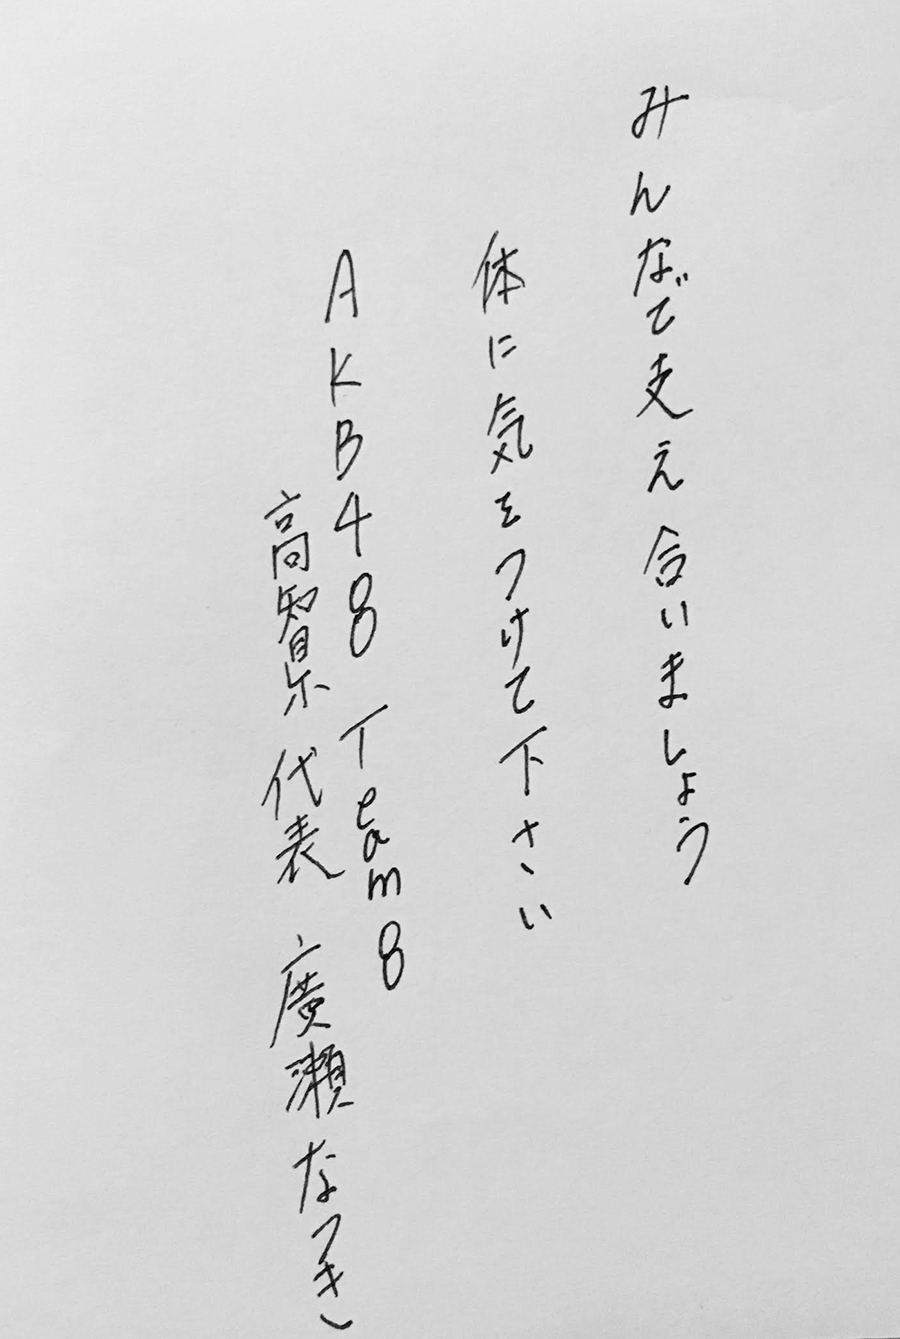 みんなで支え合いましょう
体に気をつけて下さい
AKB48 Team8
高智県代表 廣瀬なつき